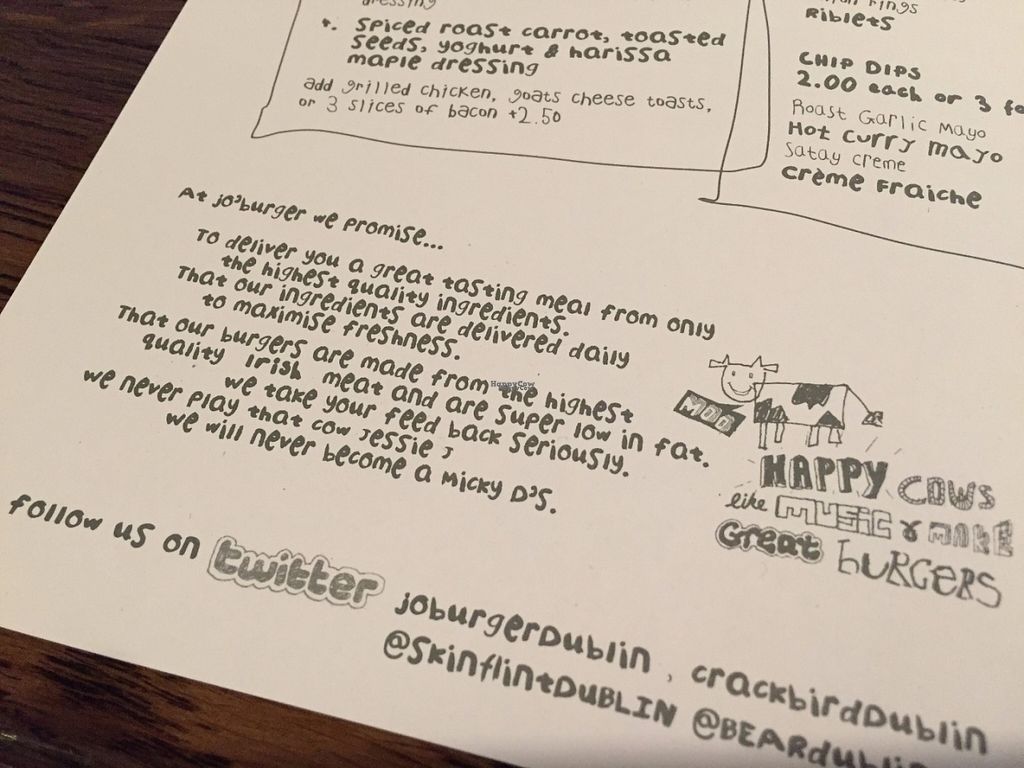 t. Spiced roast carrot, toasted
seeds, yoghurt & harissa
maple dressing
add grilled chicken, goats cheese toasts,
or 3 slices of bacon +2.50
Riblets
CHIP DIPS
2.00 each or 3
Roast Garlic Mayo
Hot Curry mayo
Satay creme
Crème Fraiche
At jo'burger we promise...
To deliver you a great tasting meal from only
the highest quality ingredients.
That our ingredients are delivered daily
to maximise freshness.
That our burgers are made from the highest
quality Irish meat and are super low in fat.
we take your feed back seriously.
we never play that cow Jessie J
we will never become a Micky D's.
MOO
HAPPY COWS
like MUSIC & MAKE
Great BURGERS
follow us on twitter joburgerDublin, crackbirdDublin
@SkinflintDUBLIN @BEARdublin
HappyCow